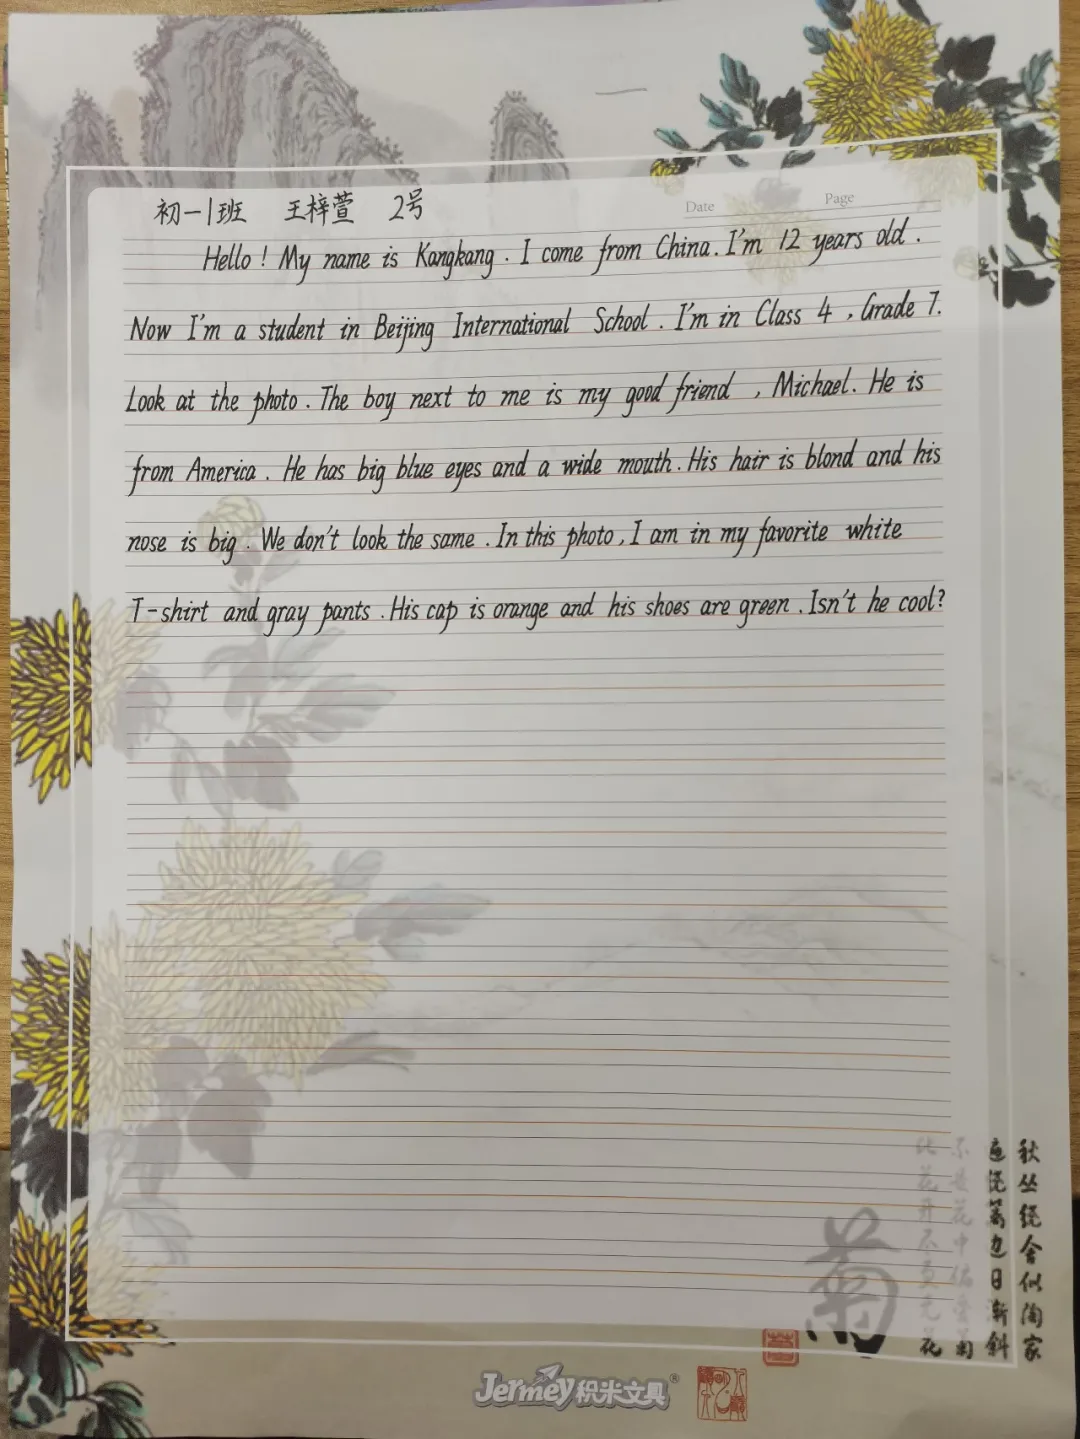 初一1班 王梓萱 2号
Date Page
Hello! My name is Kangkang. I come from China. I'm 12 years old.
Now I'm a student in Beijing International School. I'm in Class 4, Grade 7.
Look at the photo. The boy next to me is my good friend, Michael. He is
from America. He has big blue eyes and a wide mouth. His hair is blond and his
nose is big. We don't look the same. In this photo, I am in my favorite white
T-shirt and gray pants. His cap is orange and his shoes are green. Isn't he cool?
秋丛绕舍似陶家
遍绕篱边日渐斜
不是花中偏爱菊
此花开尽更无花
菊
Jermey积米文具®